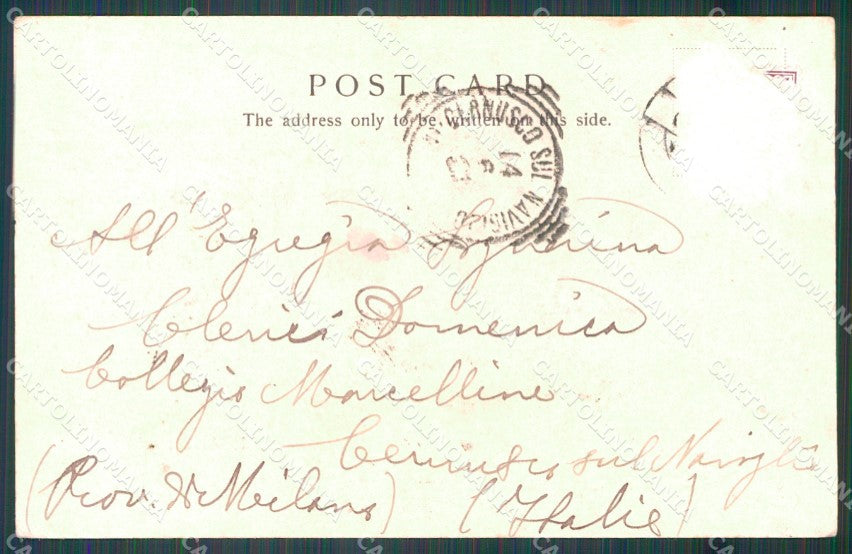 POST CARD
The address only to be written on this side.
CERNUSCO SUL NAVIGLIO
14
All' Egregia Signorina
Clerici Domenica
Collegio Marcelline
Cernusco sul Naviglio
(Prov. di Milano) (Italie)
CARTOLINOMANIA